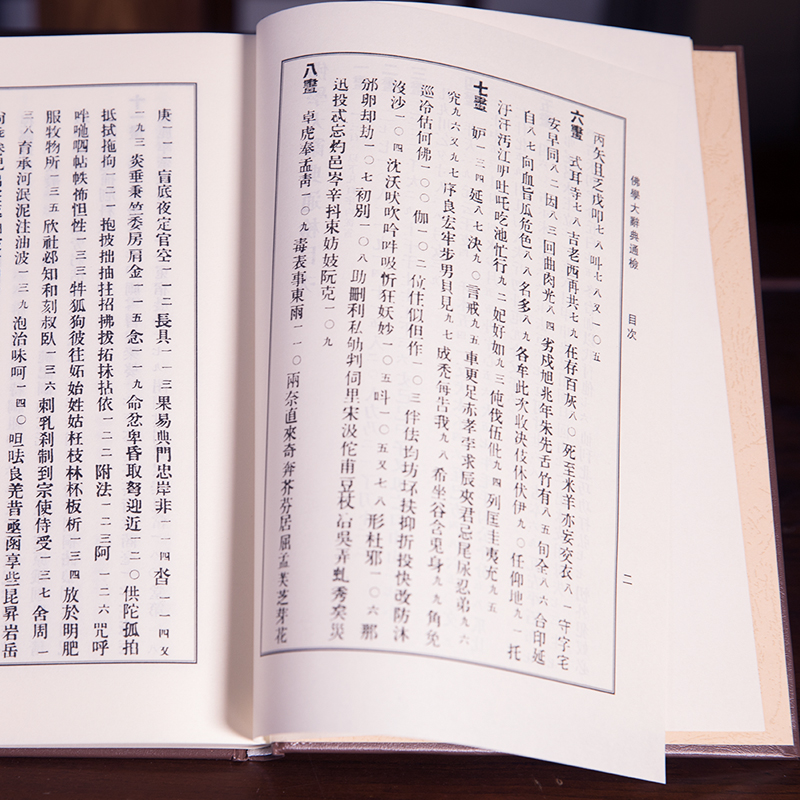 佛學大辭典通檢　目次
二
丙矢且乏戊叩七八叫七八又一〇五
六畫　式耳寺七八吉老西再共七九在存百灰八〇死至米羊亦妄交衣八一守字宅
安早同八二因八三回曲肉光八四劣成旭兆年朱先舌竹有八五旬全八六合印延
自八七向血旨瓜危色八八名多八九各牟此次收決伎休伏伊九〇任仰地九一托
汙汗汚江吖吐吒吃池忙行九二妃好如九三伅伐伍仳九四列匡圭夷充九五
七畫　妒一三四延八七決九〇言戒九五車更足赤孝孛求辰夾君忌尾尿忍弟九六
究九六又九七序良宏牢步男貝見九七成禿每告我九八希坐谷含兎身九九角免
巡冷估何佛一〇〇伽一〇二位住似但作一〇三伴佉均坊坏扶抑折投快改防沐
沒沙一〇四沈沃吠吹吟吽吸忻狂妖妙一〇五叫一〇五又七八形杜邪一〇六那
邠卵却劫一〇七初別一〇八助刪利私劬判伺里宋汲佗甫豆杖冶吳弄虬秀矣災
迅投忒忘杓邑岑辛抖束妨妓阮克一〇九
八畫　卓虎奉孟靑一〇九毒表事東雨一一〇兩奈直來奇奔芥芬居屈孟芙芝芽花
庚一一一盲底夜定官空一一二長具一一三果易典門忠岸非一一四沓一一四又
一九三炎垂秉竺委房肩金一一五念一一九命忿卑昏取弩迎近一二〇供陀孤拍
抵拭拖拘一二一抱披拙抽拄招拂拔拓抹拈依一二二附法一二三阿一二六咒呼
呤呬呫帙怖怛性一三四放於明肥
服牧物所一三五欣社邲知和刻叔臥一三六刺乳刹制到宗使侍受一三七舍周一
三八育承河泯泥注油波一三九泡治味呵一四〇呾呿良羌昔亟函享些昆昇岩岳